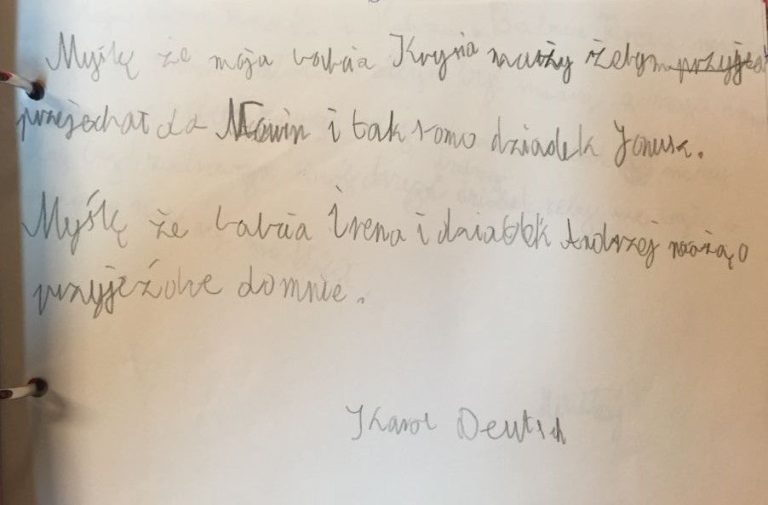 Myślę że moja babcia Krysia marży żebym przyje
przejechał do Mawin i tak samo dziadek Janusz.
Myślę że babcia Irena i dziadek Andrzej mażą o
przyjeździe do mnie.
Karol Deutsch